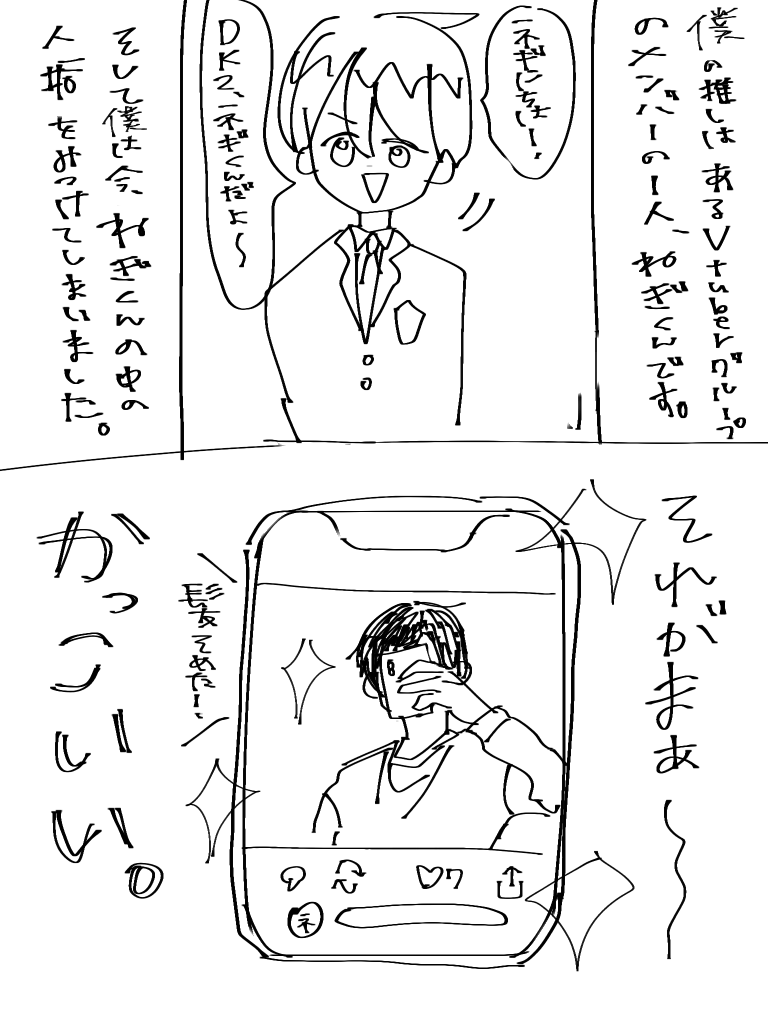 僕の推しはあるVtuberグループ
のメンバーの1人、ねぎくんです。
ネギにちはー!
DK2、ネギくんだよ〜
そして僕は今、ねぎくんの中の
人垢をみつけてしまいました。
それがまぁ〜
髪そめた!
7
ネ
かっこいい。